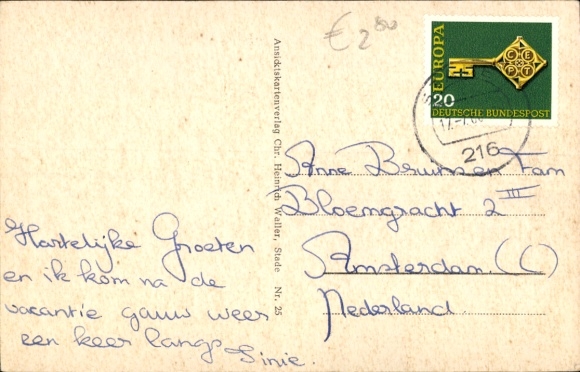 € 2⁸⁰
EUROPA
C E P T
20
DEUTSCHE BUNDESPOST
216
Ansichtskartenverlag Chr. Heinrich Waller, Stade Nr. 25
Anne Bruinsen Fam
Bloemgracht 2 III
Amsterdam. (C)
Nederland.
Hartelijke Groeten
en ik kom na de
vacantie gauw weer
een keer langs
Sinie.